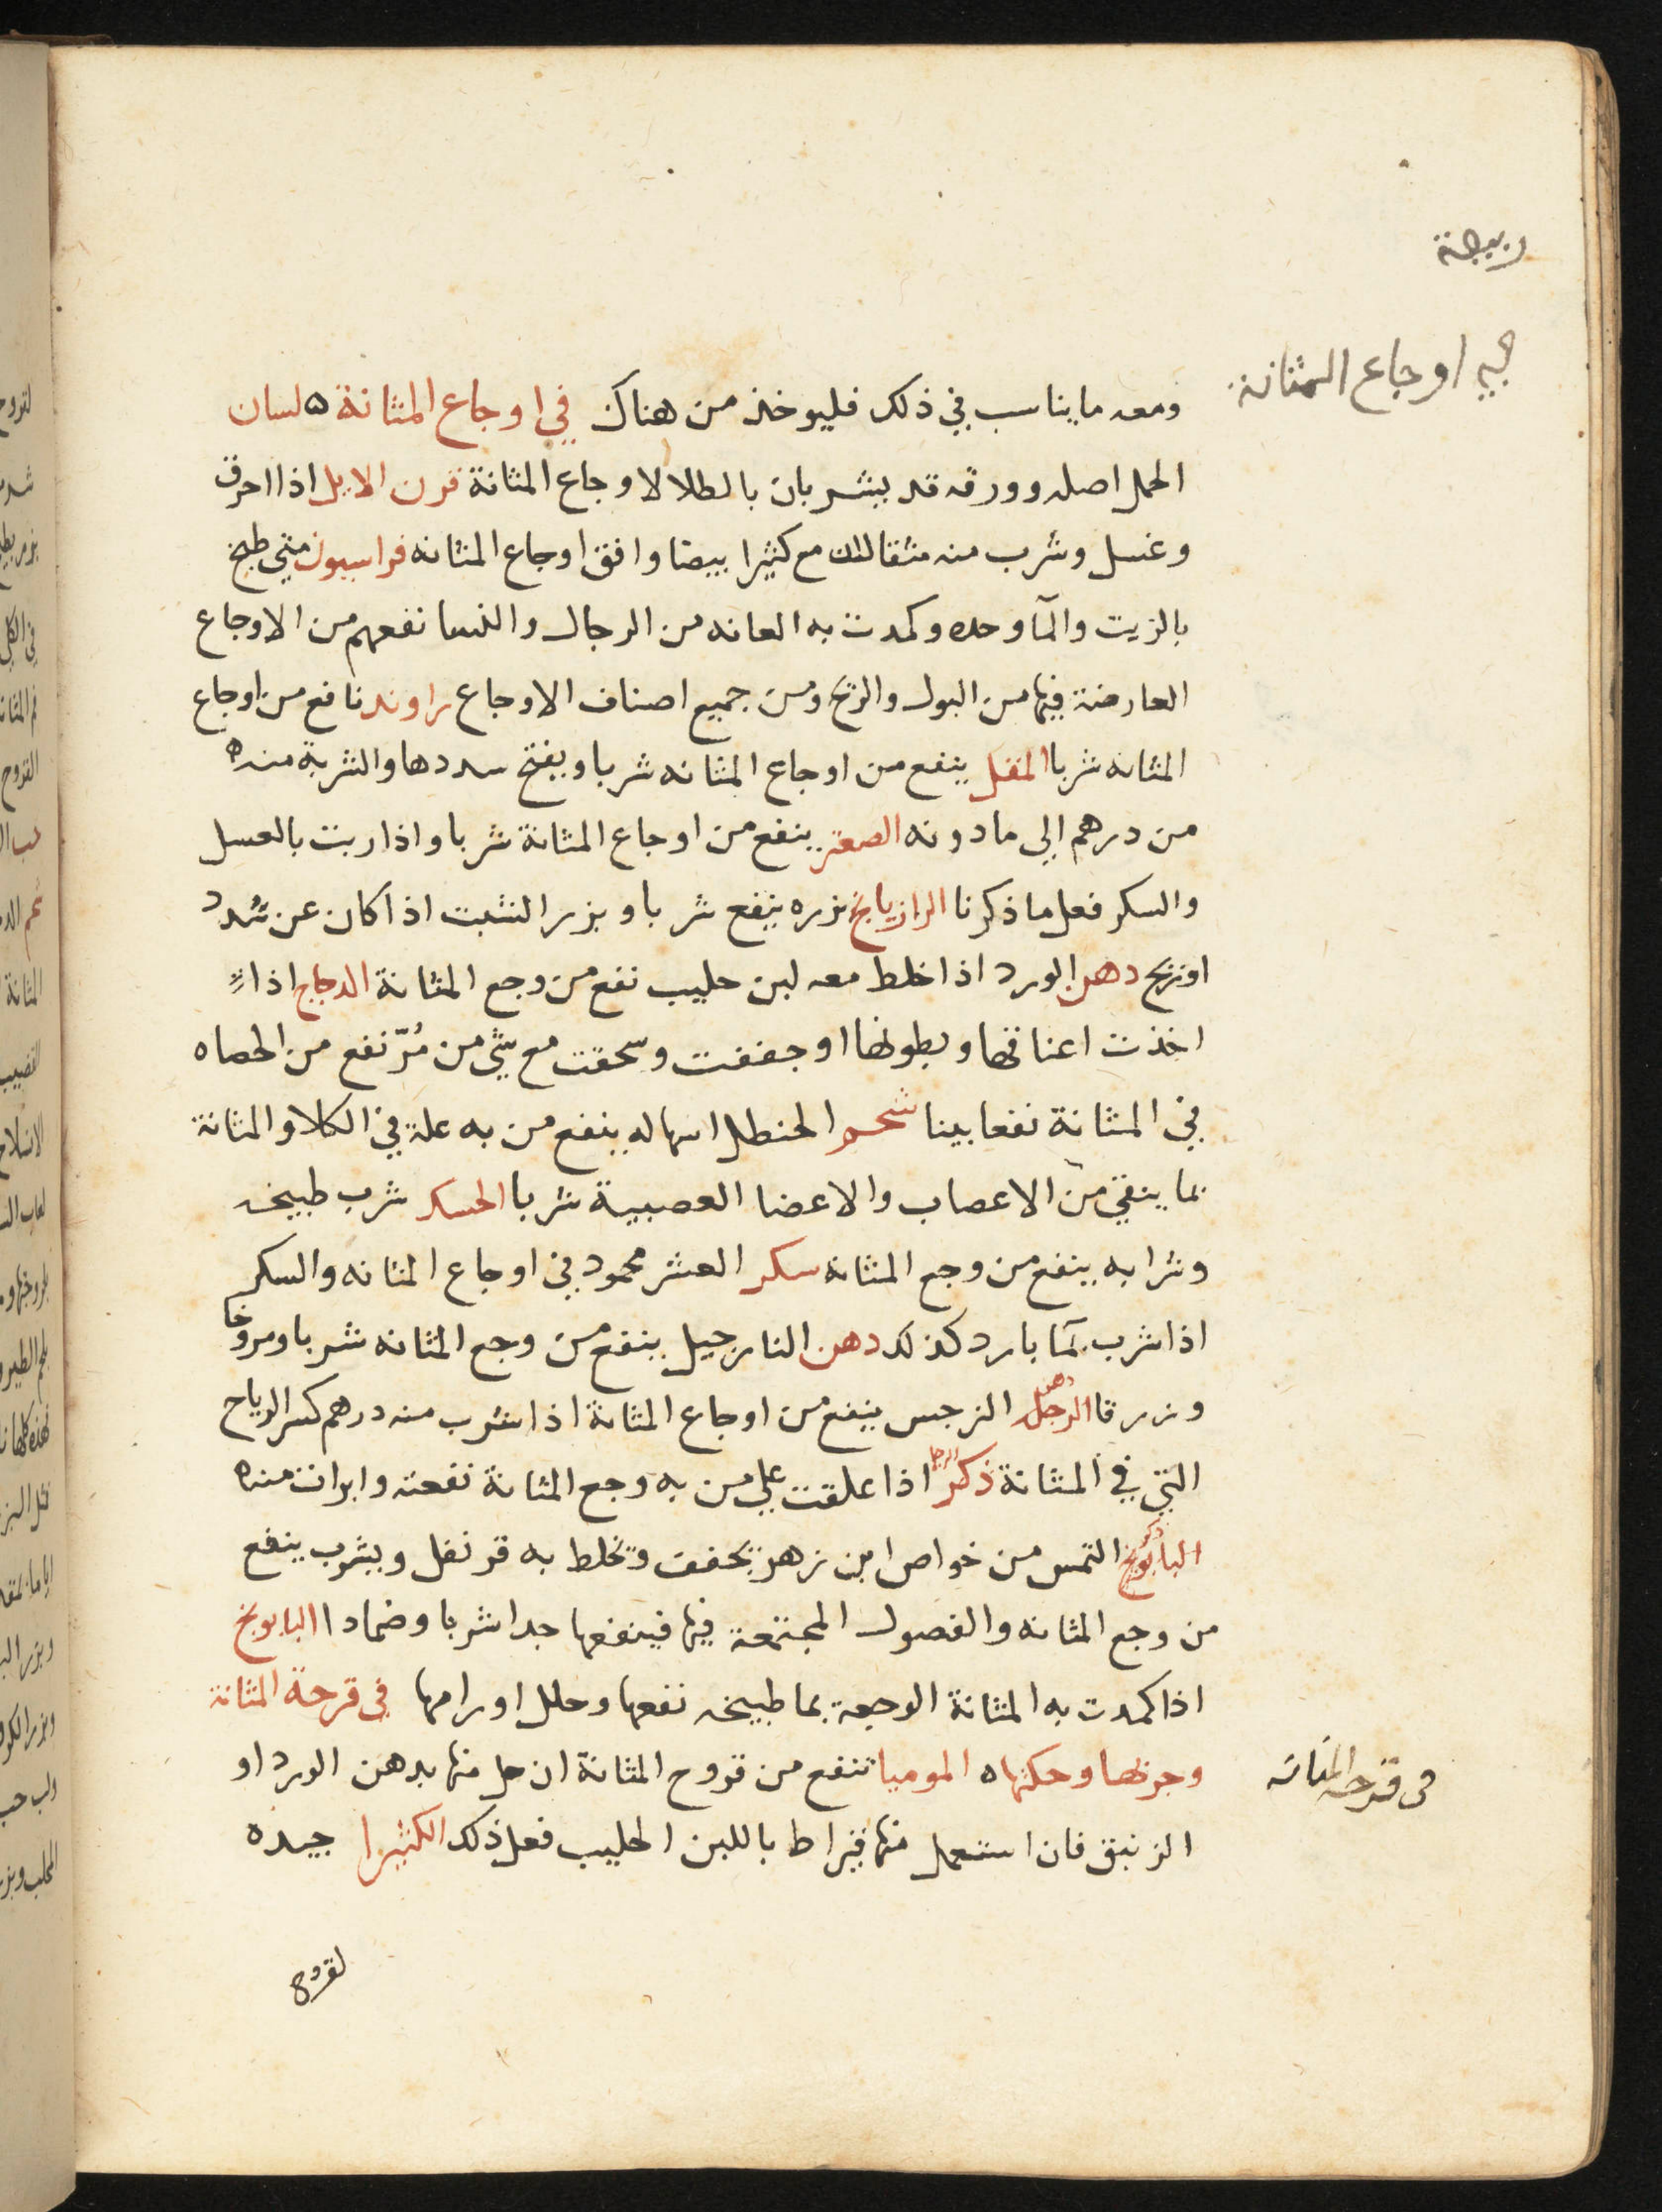 في اوجاع المثانة
ومعه ما يناسب في ذلك فليوخذ من هناك في اوجاع المثانة ه لسان
الحمل اصله وورقه قد يشربان بالطلا لاوجاع المثانة قرن الايل اذا احرق
وغسل وشرب منه مثقالان مع كثيرا بيضا وافق اوجاع المثانه فراسيون متي طبخ
بالزيت والمآ وحده وكمدت به العانه من الرجال والنسا نفعهم من الاوجاع
العارضة فيها من البول والريح ومن جميع اصناف الاوجاع راوند نافع من اوجاع
المثانه شربا المقل ينفع من اوجاع المثانه شربا ويفتح سددها والشربة منه ه
من درهم الي ما دونه الصعتر ينفع من اوجاع المثانة شربا واذا ربت بالعسل
والسكر فعل ما ذكرنا الرازيانج بزره ينفع شربا وبزر الشبت اذا كان عن سُدد
او ريح دهن الورد اذا خلط معه لبن حليب نفع من وجع المثانة الدجاج اذا
اخذت اعناقها وبطونها وجففت وسحقت مع شي من مُرّ نفع من الحصاه
في المثانة نفعا بينا شحم الحنظل اسهاله ينفع من به علة في الكلا والمثانة
بما ينقي من الاعصاب والاعضا العصبية شربا الحسك شرب طبيخه
وشرابه ينفع من وجع المثانه سكر العشر محمود في اوجاع المثانه والسكر
اذا شرب بمآ بارد كذلك دهن النارجيل ينفع من وجع المثانه شربا ومروخا
وزرقا دهن النرجس ينفع من اوجاع المثانة اذا شرب منه درهم كسر الرياح
التي في المثانة ذكر اذا علقت علي من به وجع المثانة نفعته وابرات منه ه
التمس من خواص ابن زهر يجفف ويخلط به قرنفل ويشرب ينفع
من وجع المثانه والفضول المجتمعة فيها فينفعها جدا شربا وضمادا البابونج
اذا كمدت به المثانة الوجعة بما طبيخه نفعها وحلل اورامها في قرحة المثانة
في قرحه المثانه
وجربها وحكتها ه الموميا تنفع من قروح المثانة ان حل منها بدهن الورد او
الزنبق فان استعمل منها قيراط باللبن الحليب فعل ذلك الكثيرا جيده
لقروح